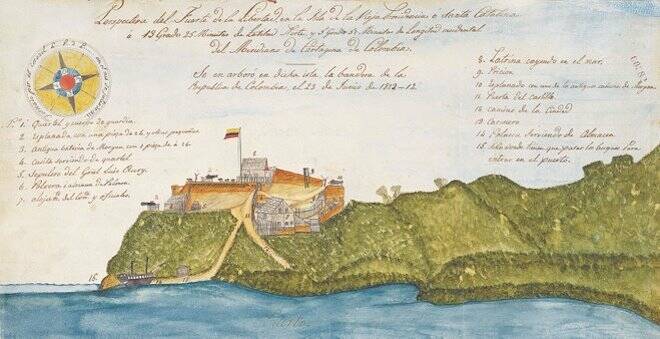 Perspectiva del Fuerte de la Libertad, en la Isla de la Vieja Providencia ó Santa Catalina
á 13 Grados 25 Minutos de Latitud Norte, y 5 Grados 57 Minutos de Longitud occidental
del Meridiano de Cartagena de Colombia.
Se en arboro en dicha isla la bandera de la
Republica de Colombia, el 23 de Junio de 1822-12.
1. Quartel y cuerpo de guardia.
2. Esplanada con una pieza de 24 y otras pequeñas
3. Antigua bateria de Morgan con 1 pieza de á 24
4. Casita sirviendo de quartel
5. Sepulcro del Gral Luis Aury.
6. Polvora
7. alojamto. del Com. y oficiales.
8. Latrina cayendo en el mar.
9. Pricion
10. Esplanada con uno de los antiguos cañones de Morgan
11. Puerta del Castillo
12. camino de la Ciudad
13. Cocinero
14. sirviendo de Almacen
15. donde tienen que pasar los buques para
entrar en el puerto.
15
Puerto